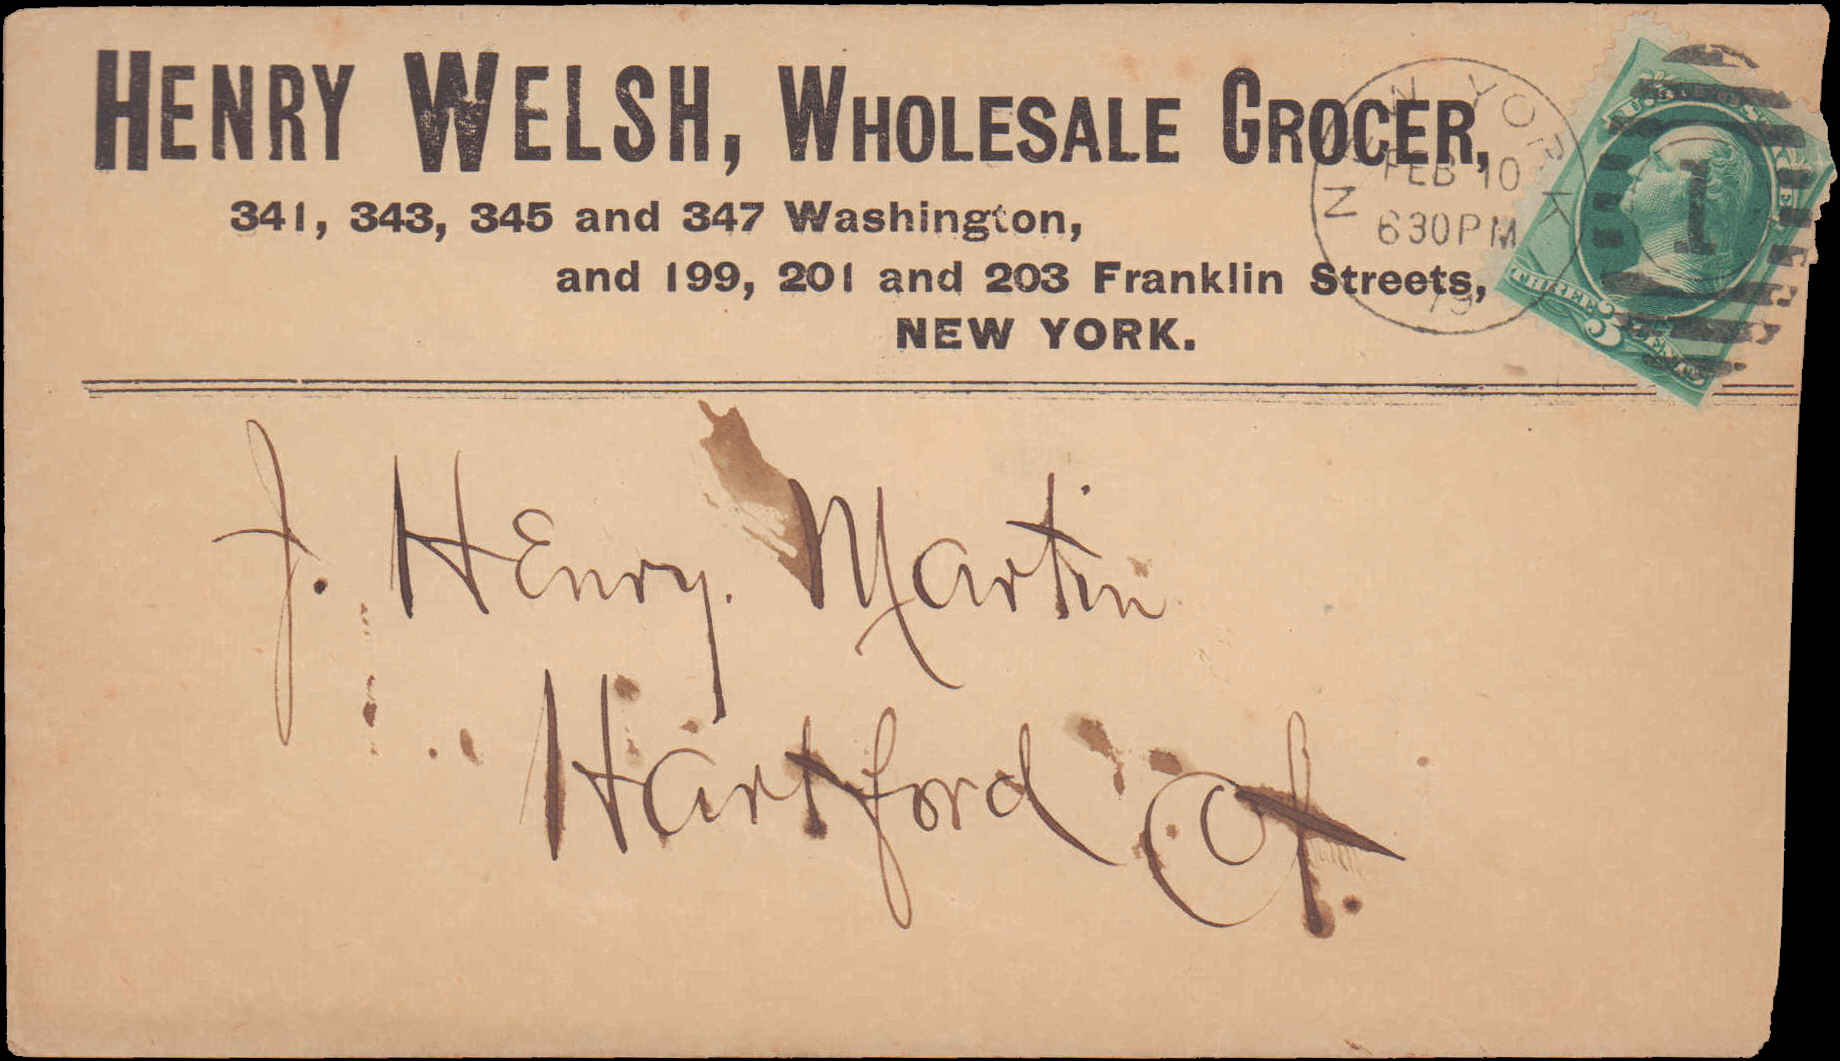 HENRY WELSH, WHOLESALE GROCER,
341, 343, 345 and 347 Washington,
and 199, 201 and 203 Franklin Streets,
NEW YORK.
NEW YORK
FEB 10
630PM
79
1
THREE 3 CENTS
J. Henry. Martin
Hartford Ct.